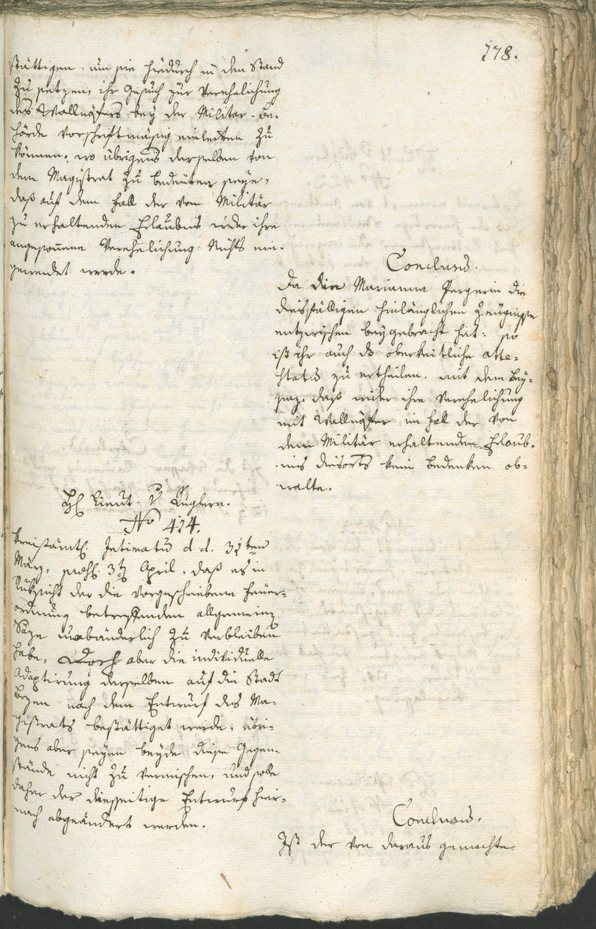 178.
stättigen, um sie hiedurch in den Stand
zu setzen, ihr Gesuch zur Verehelichung
des Wallnöfers bey der Militar-Be-
hörde vorschriftmäsig einleiten zu
können, wo übrigens derselben von
dem Magistrat zu bedeuten seye,
daß auf dem Fall der vom Militär
zu erhaltenden Erlaubnis wider ihre
Verehelichung Nichts ein-
gewendet werde.
Conclusum.
Da die Marianna Pergerin die
diesfälligen hinlänglichen Zeugnisse
entzwischen beygebracht hat, so
ist ihr auch das obrigkeitliche Atte-
statum zu ertheilen, mit dem Bey-
saz, daß wider ihre Verehelichung
mit Wallnöfer im Fall der von
dem Militär erhaltenden Erlaub-
nis dieorts kein Bedenken ob-
walte.
No 414.
Kreisämtl. Intimatum d. d. 31ten
März, praes. 3t April, daß es in
Rücksicht der die vorgeschriebene Feuer-
ordnung betreffenden allgemeinen
Säze unabänderlich zu verbleiben
habe, doch aber die individuelle
Adaptirung derselben auf die Stadt
Bozen nach dem Entwurf des Ma-
gistrats bestättiget werde, übri-
gens aber seyen beyde diese Gegen-
stände nicht zu vermischen, und solle
daher der diesseitige Entwurf hier-
nach abgeändert werden.
Conclusum.
Ist der von daraus gemachte